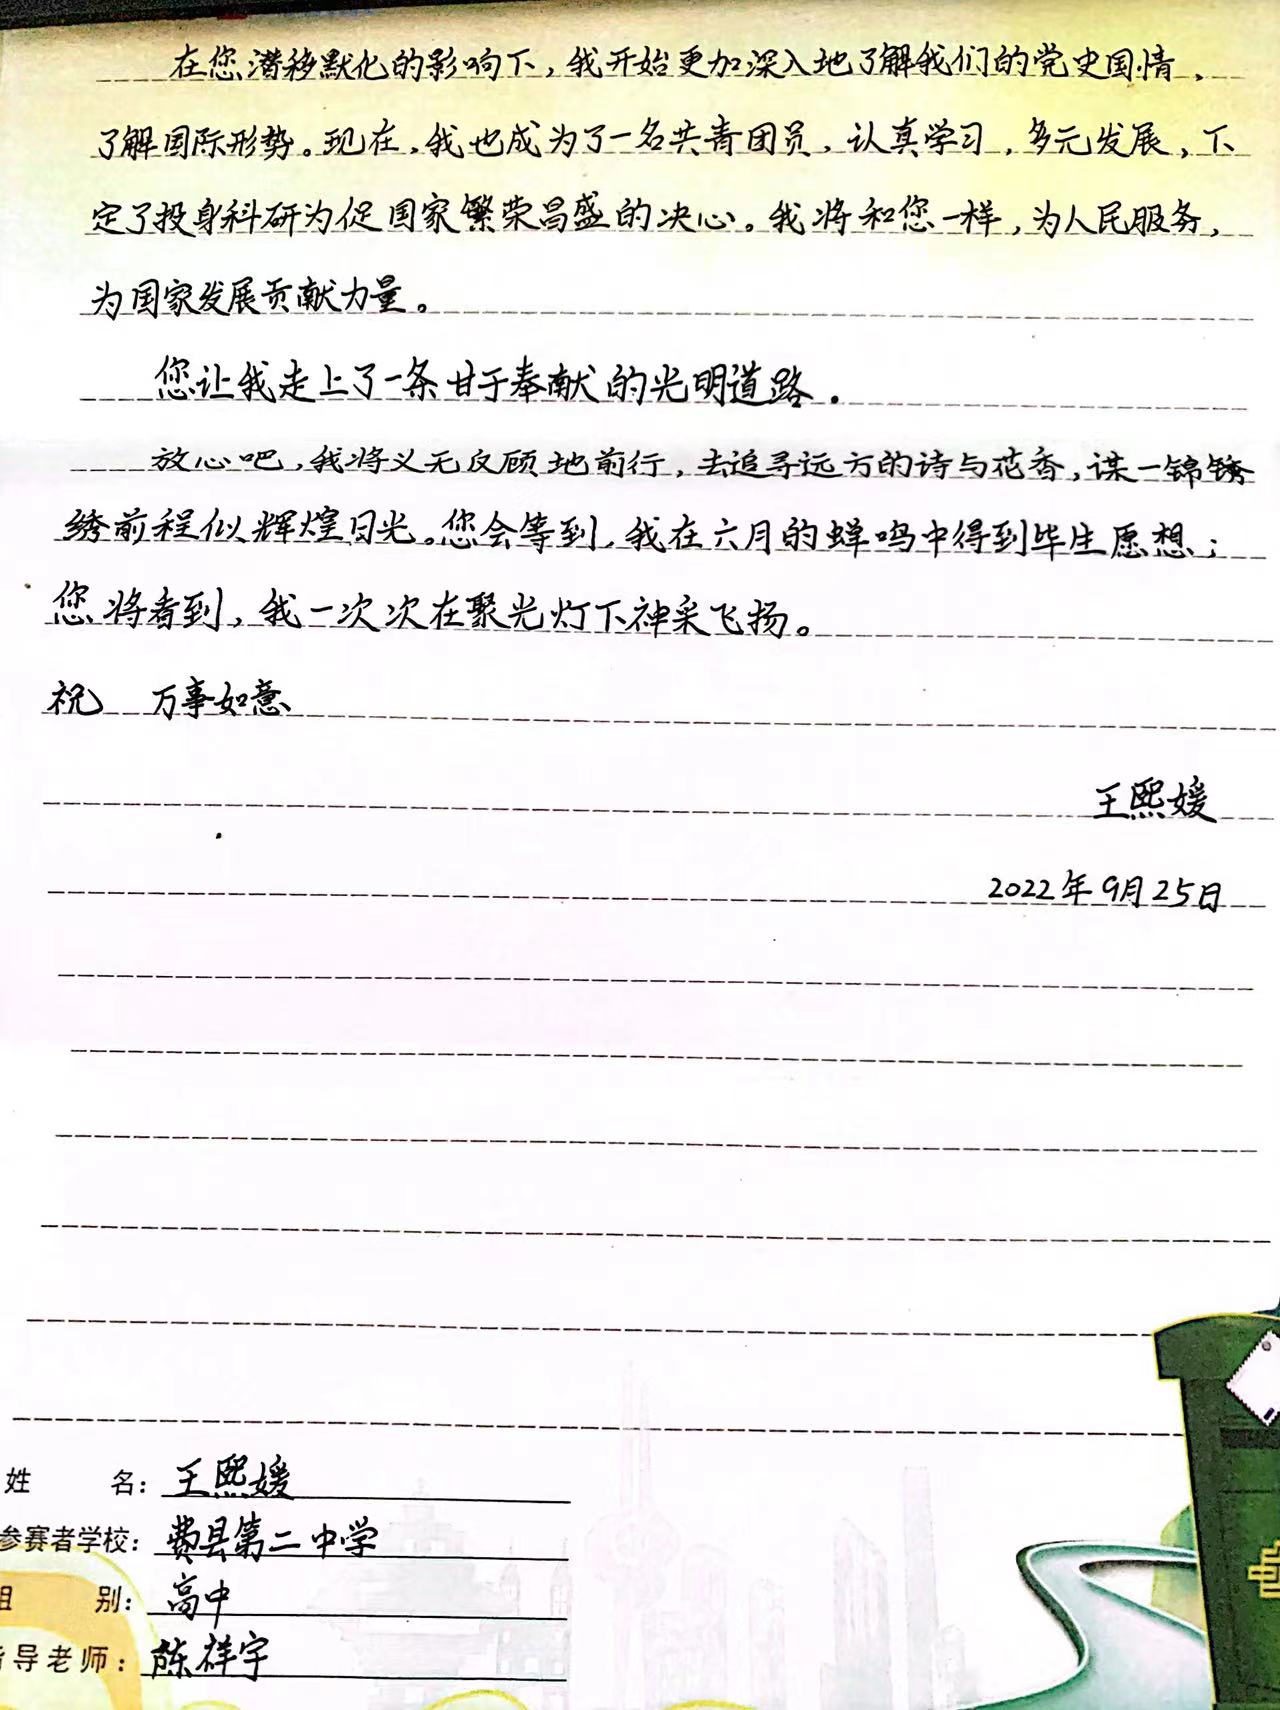 在您潜移默化的影响下,我开始更加深入地了解我们的党史国情,
了解国际形势。现在,我也成为了一名共青团员,认真学习,多元发展,下
定了投身科研为促国家繁荣昌盛的决心。我将和您一样,为人民服务,
为国家发展贡献力量。
您让我走上了一条甘于奉献的光明道路.
放心吧,我将义无反顾地前行,去追寻远方的诗与花香,谋一锦锈
绣前程似辉煌日光。您会等到,我在六月的蝉鸣中得到毕生愿想;
您将看到,我一次次在聚光灯下神采飞扬。
祝 万事如意
王熙媛
2022年9月25日
姓 名:王熙媛
参赛者学校:费县第二中学
组 别:高中
指导老师:陈祥宇